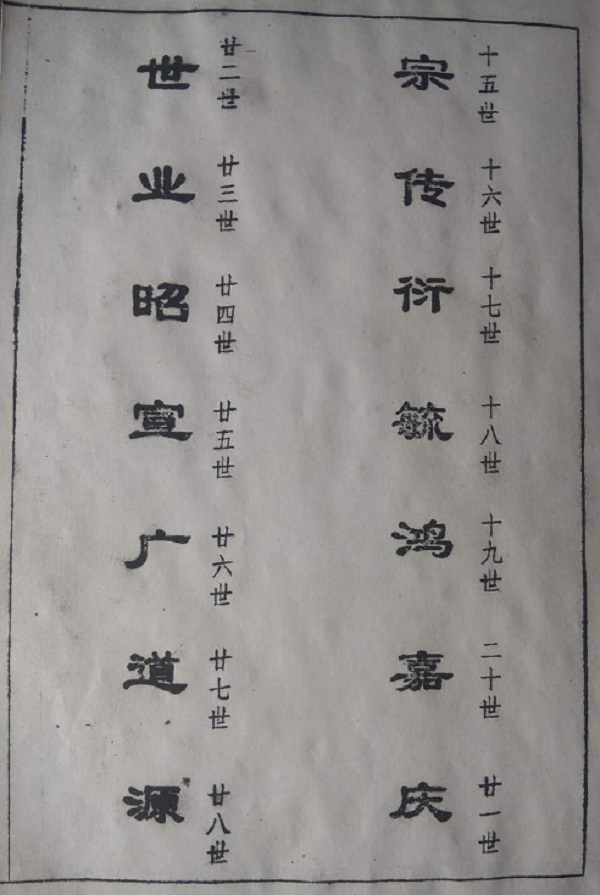 十五世 十六世 十七世 十八世 十九世 二十世 廿一世
宗传衍毓鸿嘉庆
廿二世 廿三世 廿四世 廿五世 廿六世 廿七世 廿八世
世业昭宣广道源